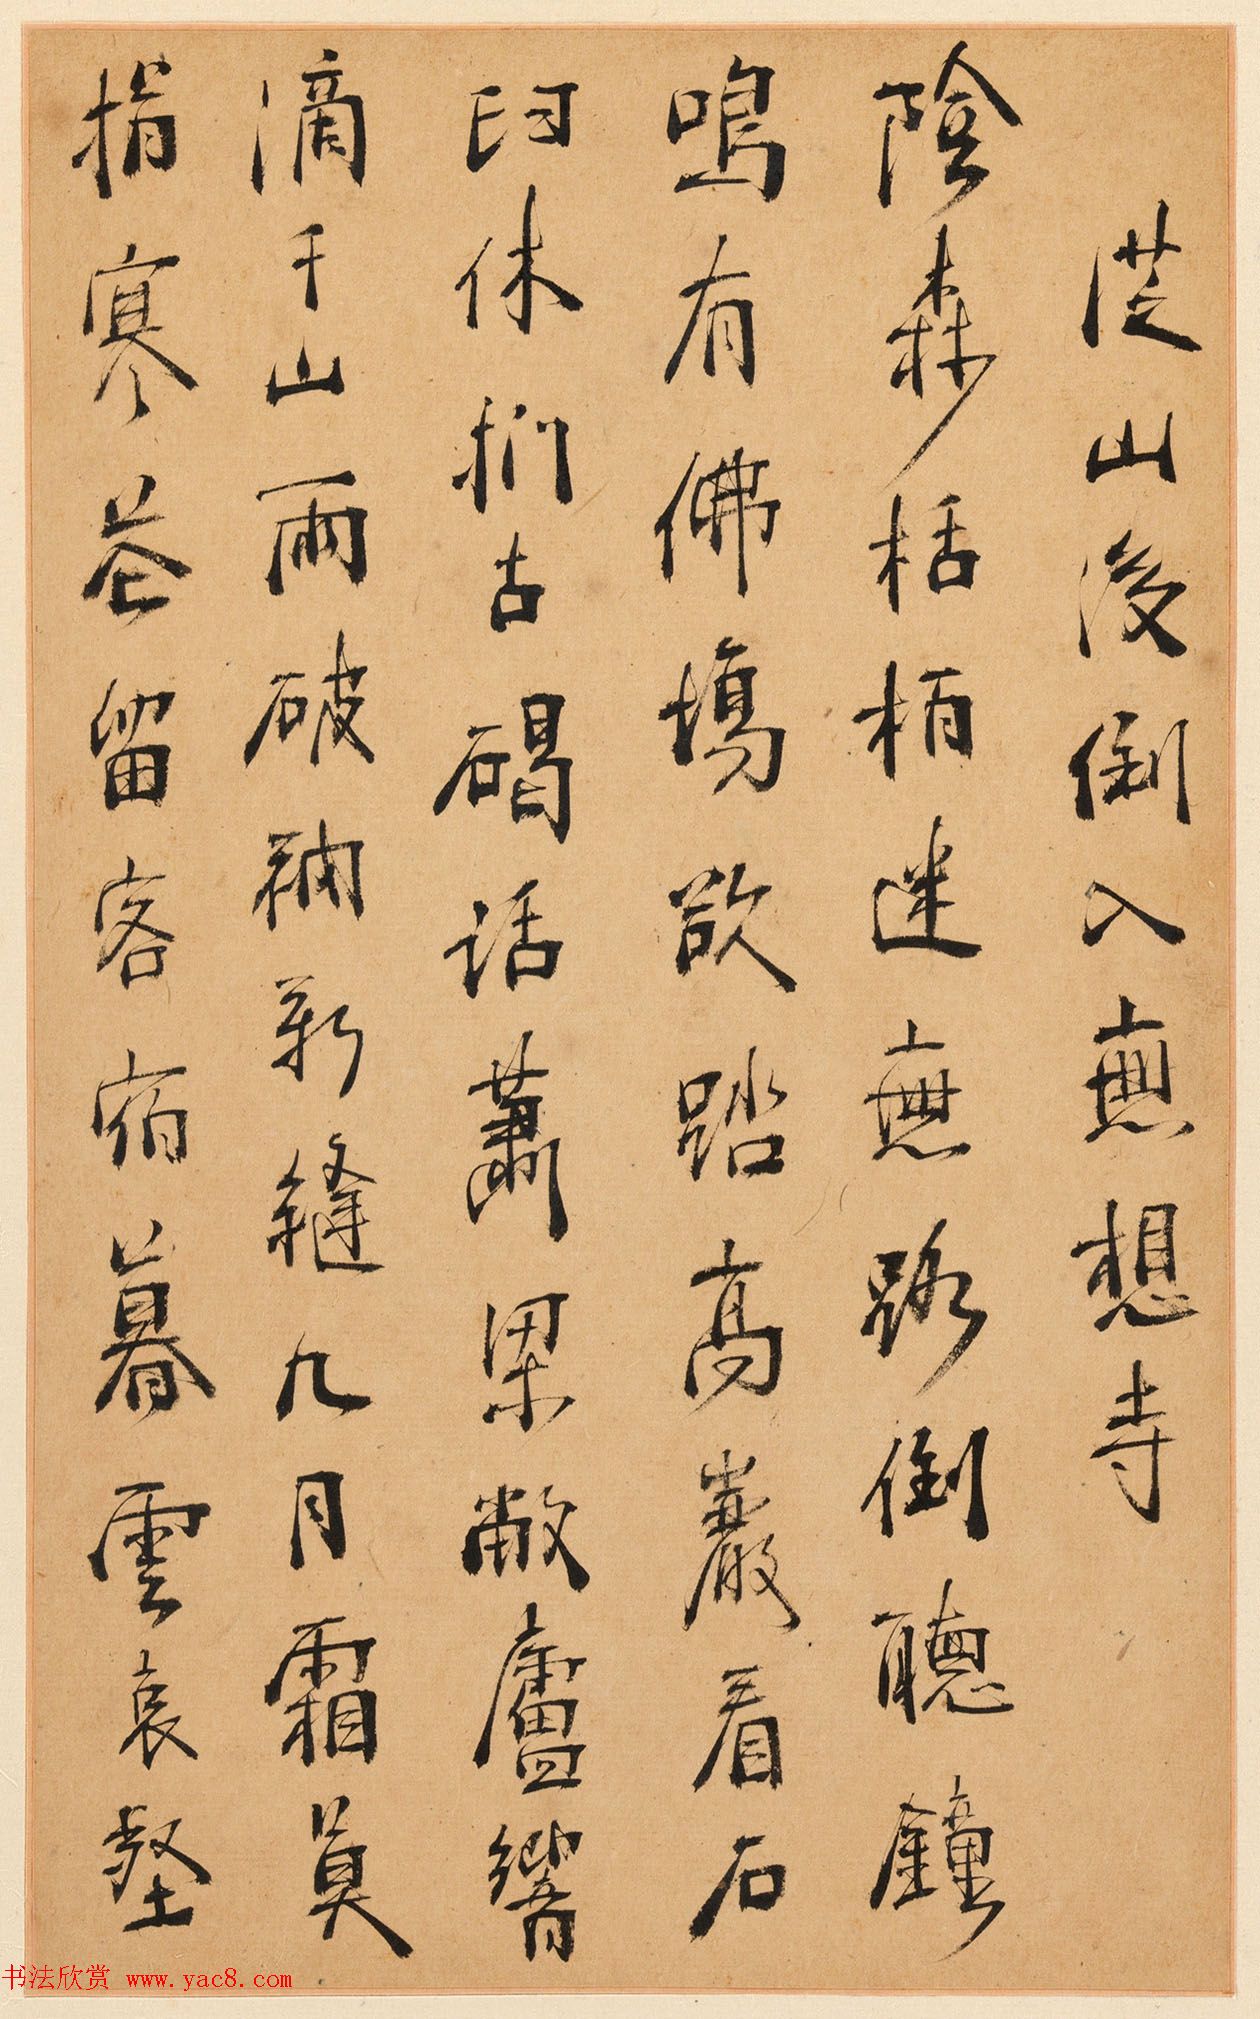 從山後倒入無想寺
陰森栝柏迷無路倒聽鐘
鳴有佛場欲踏高巖看石
臼休捫古碣話蕭梁敝廬響
滴千山雨破衲新縫九月霜莫
損寒花留客宿暮雲哀壑
书法欣赏 www.yac8.com